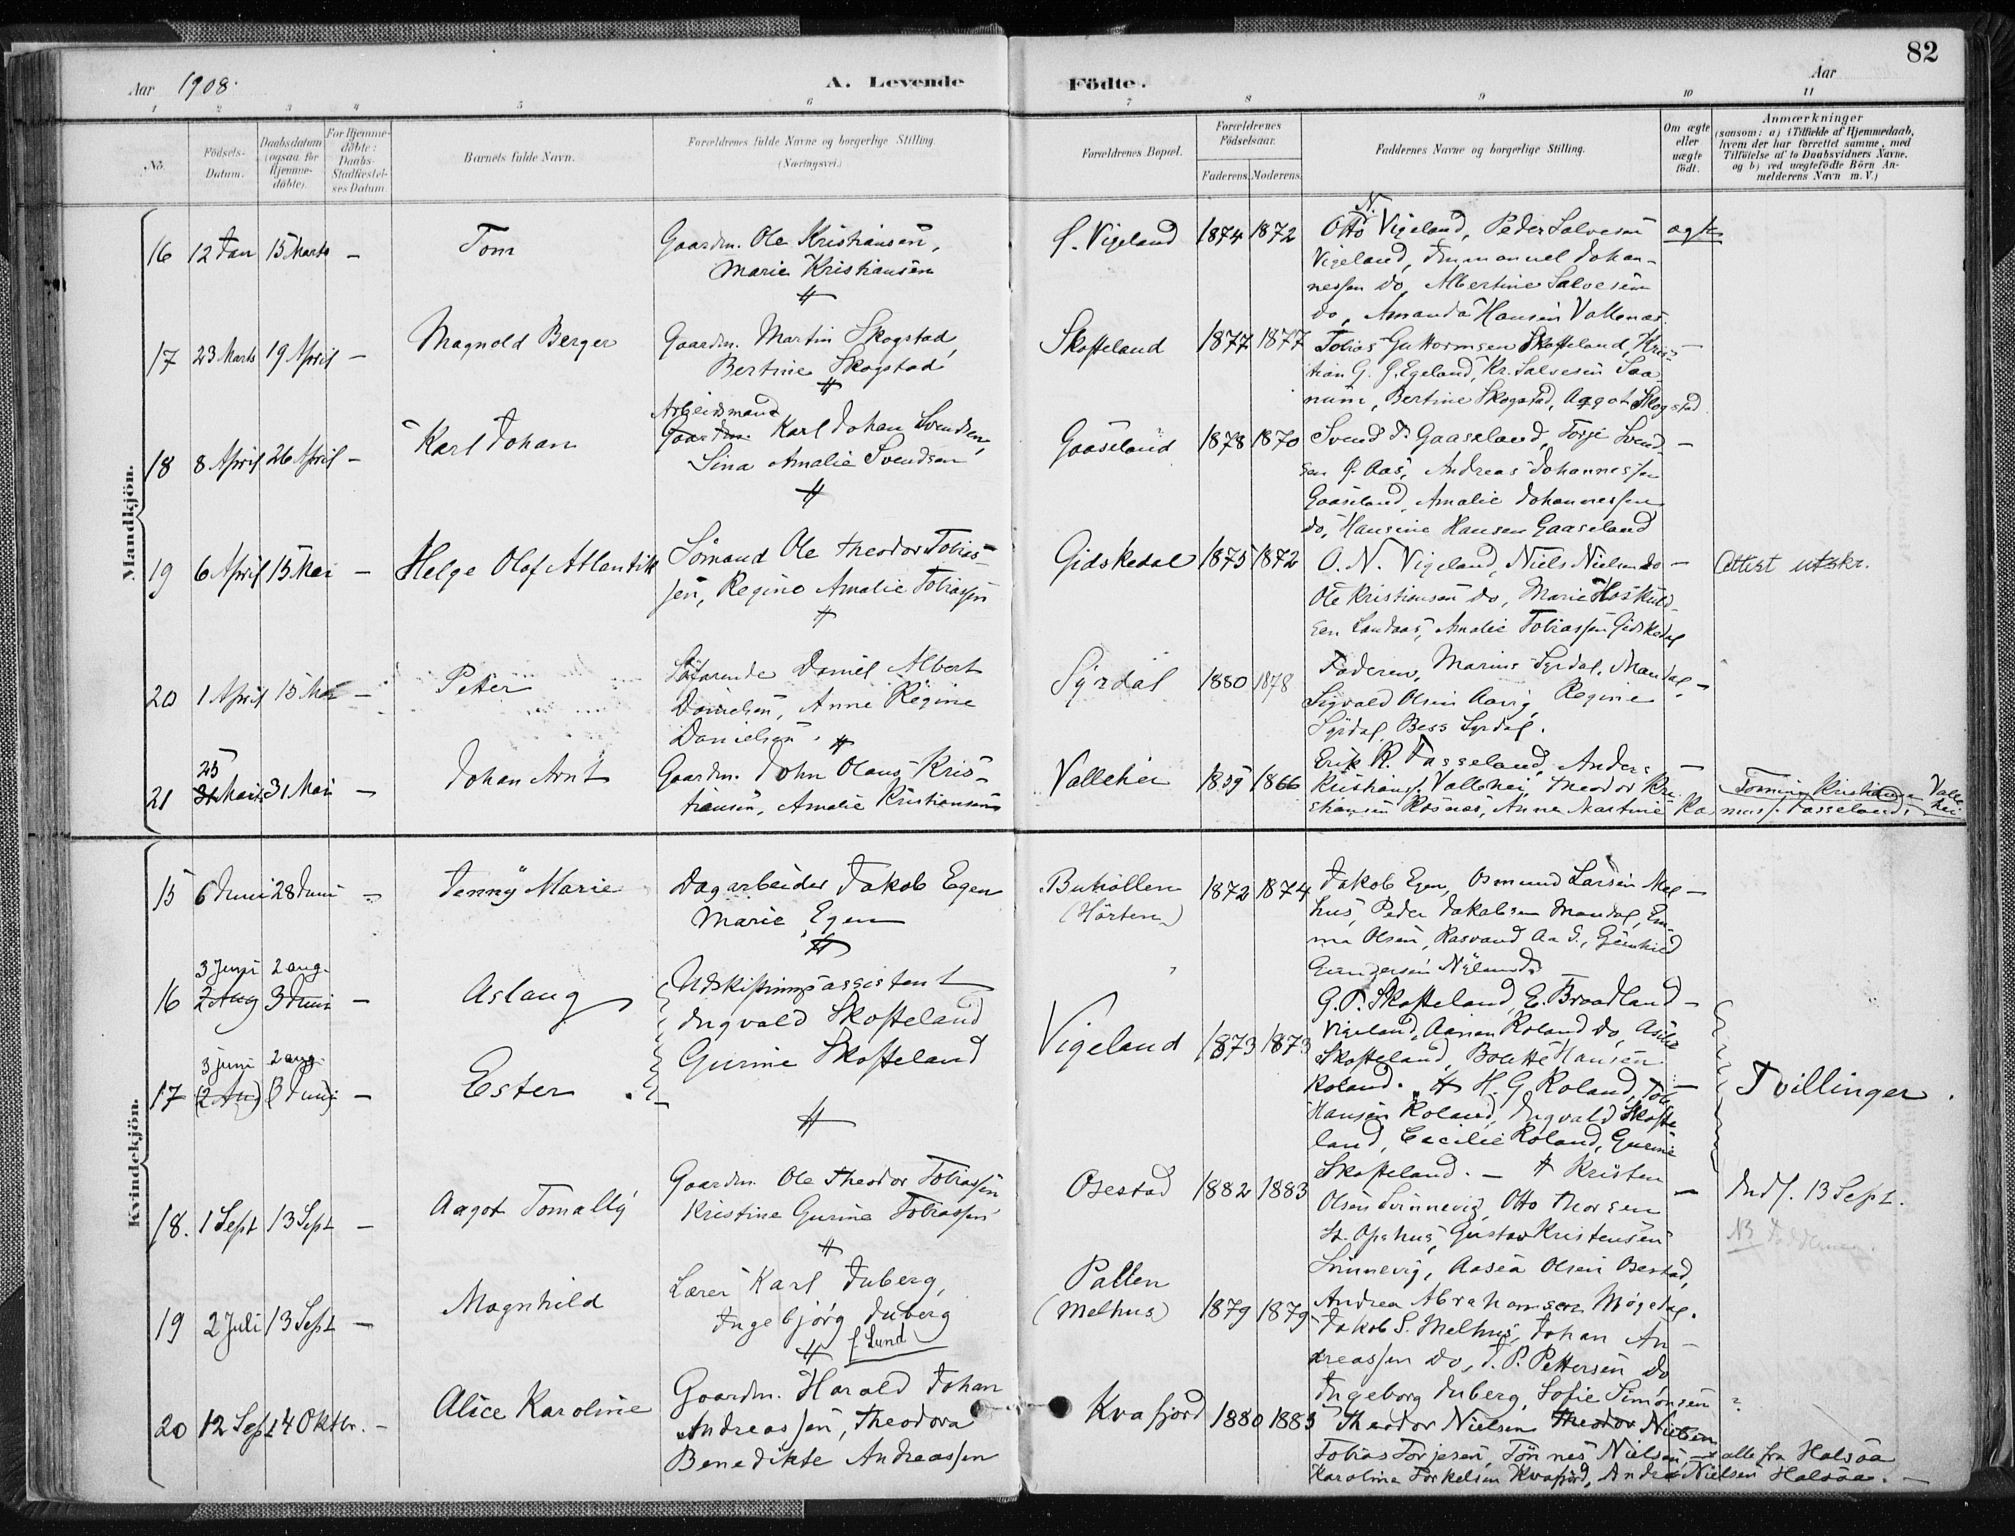 82
Aar 1908.
A. Levende Födte.
Aar
1 2 3 4 5 6 7 8 9 10 11
No.
Födsels-Datum.
Daabsdatum (ogsaa for Hjemme-döbte).
For Hjemme-döbte: Daabs-Stadfæstel-ses Datum
Barnets fulde Navn.
Forældrenes fulde Navne og borgerlige Stilling. (Næringsvei.)
Forældrenes Bopæl.
Forældrenes Födselsaar.
Faderens. Moderens.
Faddernes Navne og borgerlige Stilling.
Om ægte eller uægte födt.
Anmærkninger
(saasom: a) i Tilfælde af Hjemmedaab,
hvem der har forrettet samme, med
Tilföielse af to Daabsvidners Navne,
og b) ved uægtefödte Börn An-
melderens Navn m. V.)
Mandkjön.
16 12 Jan 15 Marts – Tom
Gaardm. Ole Kristiansen,
Marie Kristiansen
Ø. Vigeland 1874 1872
Otto N. Vigeland, Peder Salvesen
Vigeland, Immanuel Johan-
nessen do, Albertine Salvesen
do, Amanda Hansen Vallenæs.
ægte
17 23 Marts 19 April – Magnold Berger
Gaardm. Martin Skogstad,
Bertine Skogstad
Skofteland 1877 1877
Tobias Guttormsen Skofteland, Kris-
tian G. J. Egeland, Kr. Salvesen Saa-
num, Bertine Skogstad, Aagot Skogstad
–
18 8 April 26 April – Karl Johan
Arbeidsmand
Gaardm. Karl Johan Svendsen,
Sina Amalie Svendsen
Gaaseland 1878 1870
Svend T. Gaaseland, Torje Svend-
sen Ø. Aas, Andreas Johannessen
Gaaseland, Amalie Johannessen
do, Hansine Hansen Gaaseland
–
19 6 April 15 Mai – Helge Olaf Atlantik
Sömand Ole Theodor Tobias-
sen, Regine Amalie Tobiassen
Gidskedal 1875 1872
O. N. Vigeland, Niels Nielsen do
Ole Kristiansen do, Marie Höskuld-
sen Landaas, Amalie Tobiassen Gidskedal
–
Attest utskr.
20 1 April 15 Mai – Petter
Söfarende Daniel Albert
Danielsen, Anne Regine
Danielsen.
Syrdal 1880 1878
Faderen, Marius Syrdal, Mandal,
Sigvald Olsen Aavig, Regine
Syrdal, Bess Syrdal.
–
21 25 31 Mars 31 Mai – Johan Arnt
Gaardm. John Olaus Kris-
tiansen, Amalie Kristiansen
Vallehei 1859 1866
Erik R. Fasseland, Anders
Kristians. Vallehei, Theodor Kri-
stiansen Rosnes, Anne Martine Ras
mus. Fasseland,
Tomine Kristiansen Vallehei
–
Kvindekjön.
15 6 Juni 28 Juni – Jenny Marie
Dagarbeider Jakob Egen
Marie Egen
Buhöllen
(Hörten)
1872 1874
Jakob Egen, Osmund Larsen Mel-
hus, Peder Jakobsen Mandal, Em-
ma Olsen, Rasvand Aa S.,
Gundersen Nylund
–
16 3 Juni 2 aug. 2 Aug 3 Juni – Aslaug
Udskiftningsassistent
Ingvald Skofteland
Gurine Skofteland
Vigeland 1873 1873
G. T. Skofteland, E. Braadland
Vigeland, Roland do,
Skofteland, Bolette Hansen
Roland.
–
17 3 juni 2 aug. (2 Au) (3 Juni) – Ester
H. G. Roland, Tob.
Hansen Roland, Ingvald Skofte-
land, Cecilie Roland, Gurine
Skofteland. –
–
Tvillinger.
18. 1 Sept 13 Sept – Aagot Tomally
Gaardm. Ole Theodor Tobiassen
Kristine Gurine Tobiassen
Osestad 1882 1883
Kristen
Olsen Svinnevig, Otto Thorsen
St. Opshus, Gustav Kristensen
Svinnevig, Aasea Olsen Osestad,
Andrea Abrahamsen Møgedal.
–
Indf. 13 Sept.
19 2 Juli 13 Sept – Magnhild
Lærer Karl Tuberg,
Ingebjörg Tuberg
f. Lund
Pallen
(Melhus)
1879 1879
Jakob S. Melhus, Johan An-
dreassen do, J. P. Pettersen do
Ingeborg Tuberg, Sofie Simonsen
–
20 12 Sept 4 Oktbr. – Alice Karoline
Gaardm. Harald Johan
Andreassen, Theodora
Benedikte Andreassen
Kvafjord 1880 1883
Theodor Nielsen Theodor Nielsen
Tobias Torjesen, Tönnes Nielsen, alle fra Halsaa
Karoline Torkelsen Kvafjord, Andre Nielsen Halsaa. –